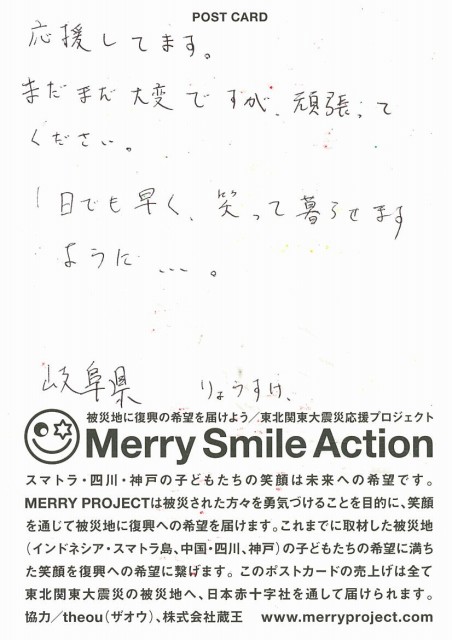 POST CARD
応援してます。
まだまだ大変ですが、頑張って
ください。
1日でも早く、笑って暮らせます
ように…。
岐阜県 りょうすけ、
被災地に復興の希望を届けよう／東北関東大震災応援プロジェクト
Merry Smile Action
スマトラ・四川・神戸の子どもたちの笑顔は未来への希望です。
MERRY PROJECTは被災された方々を勇気づけることを目的に、笑顔
を通じて被災地に復興への希望を届けます。これまでに取材した被災地
（インドネシア・スマトラ島、中国・四川、神戸）の子どもたちの希望に満ち
た笑顔を復興への希望に繋げます。このポストカードの売上げは全て
東北関東大震災の被災地へ、日本赤十字社を通して届けられます。
協力／theou（ザオウ）、株式会社蔵王 www.merryproject.com